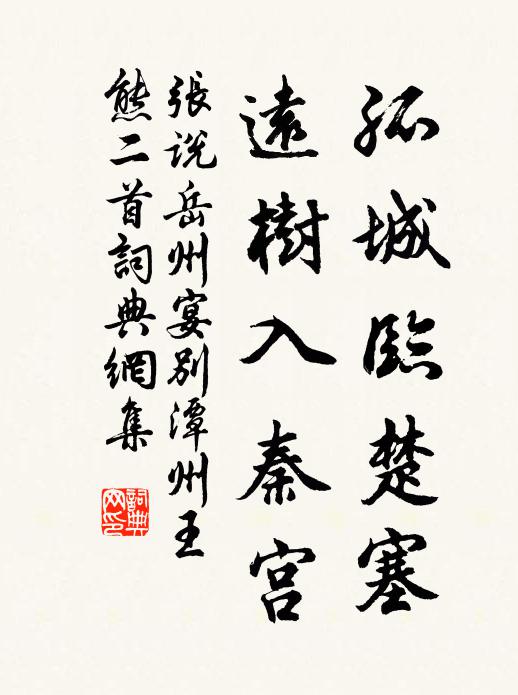 孤城臨楚塞
遠樹入秦宮
張說岳州宴別潭州王
熊二首詞典網集
詞典
网印